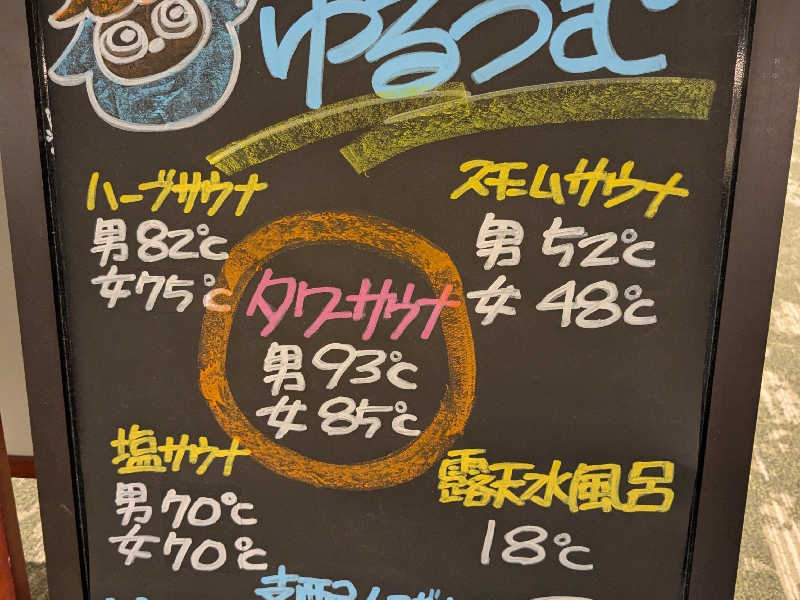 ゆるつむ
ハーブサウナ
男82℃
女75℃
スチームサウナ
男52℃
女48℃
タワーサウナ
男93℃
女85℃
塩サウナ
男70℃
女70℃
露天水風呂
18℃